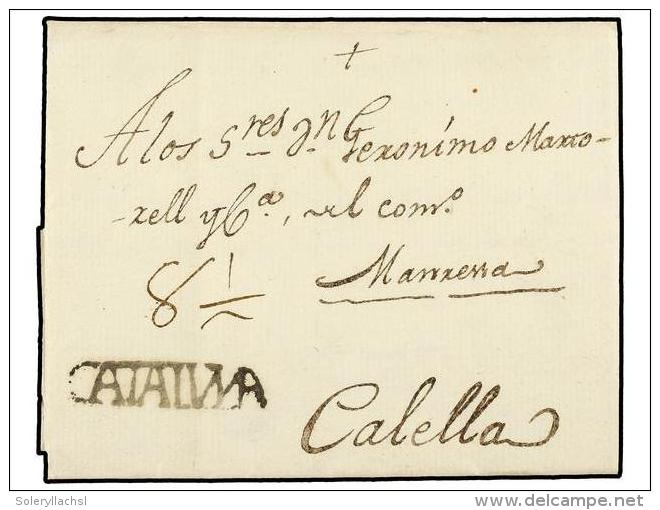 +
A los S.res D.n Geronimo Marto-
-rell y C.a, del com.o
Manresa
8 1/2
CATALUÑA
Calella
Soleryllachsl
delcampe.net